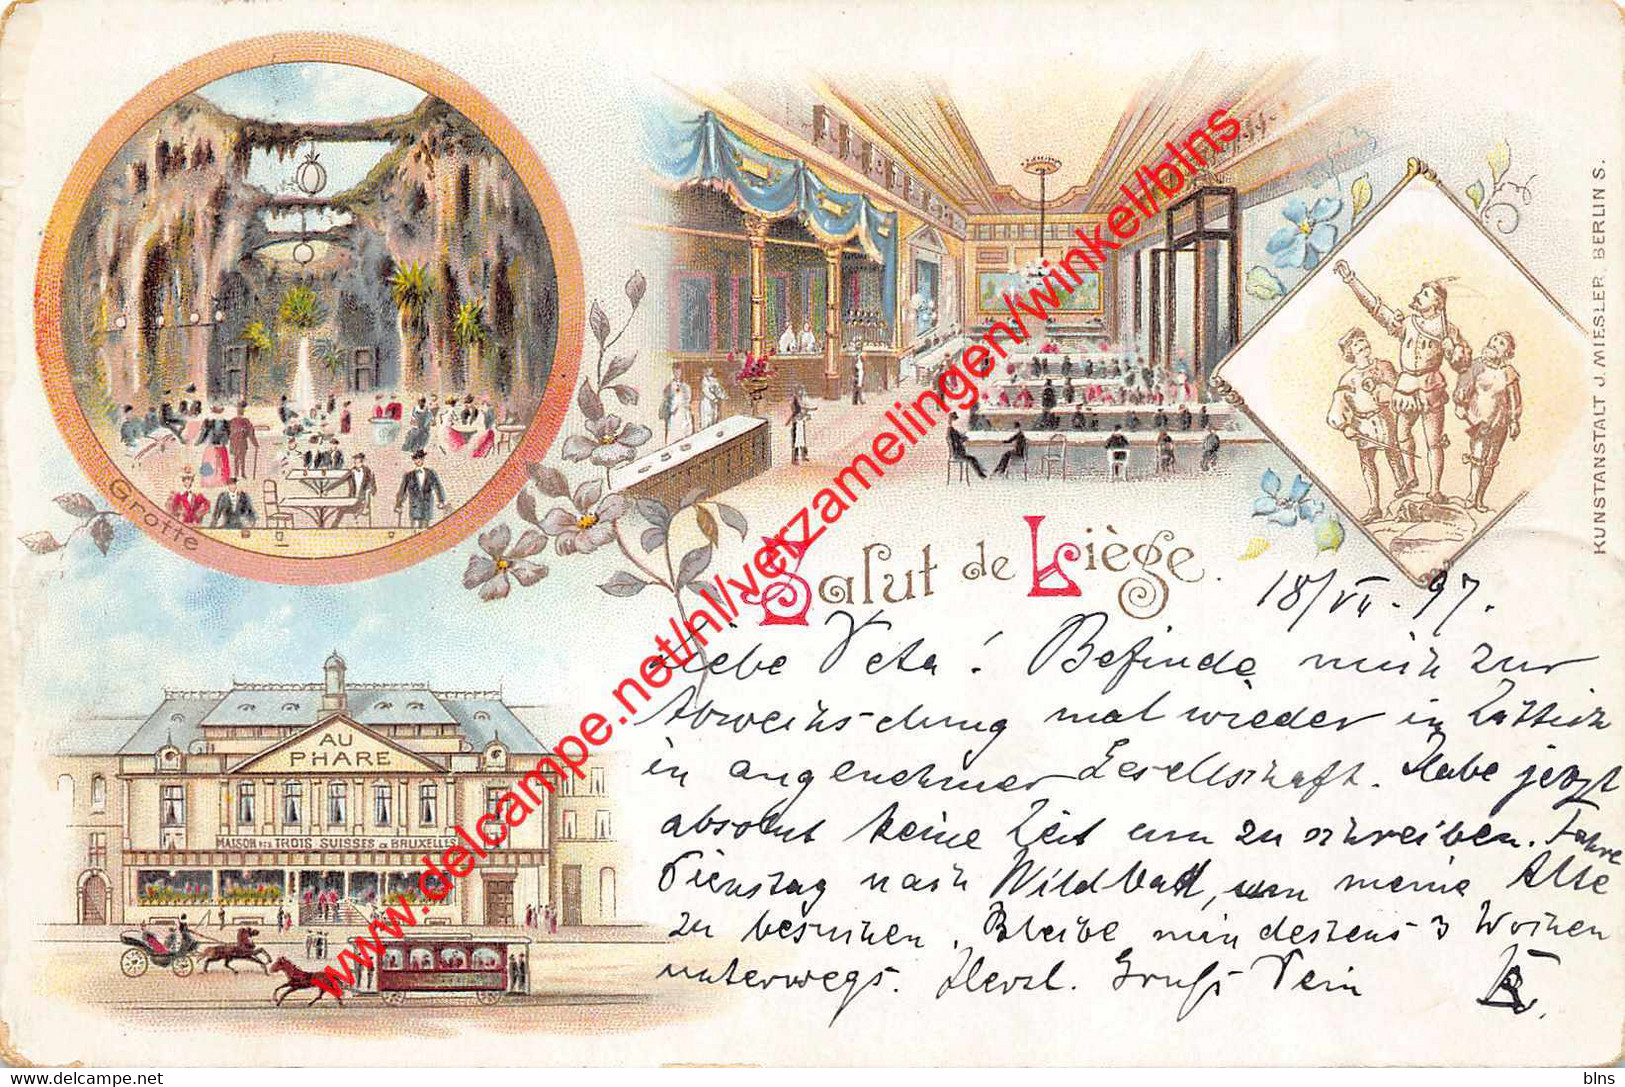 Grotte
Salut de Liège.
KUNSTANSTALT J. MIESLER, BERLIN S.
AU
PHARE
MAISON DES TROIS SUISSES à BRUXELLES
18/VII. 97.
Liebe Veta! Befinde mich zur
Abwechslung mal wieder in Lüttich
in angenehmer Gesellschaft. Habe jetzt
absolut keine Zeit um zu schreiben. Fahre
Dienstag nach Wildbad, um meine Alte
zu besuchen. Bleibe mindestens 3 Wochen
unterwegs. Herzl. Gruß Dein
www.delcampe.net/nl/verzamelingen/winkel/blns
www.delcampe.net
blns